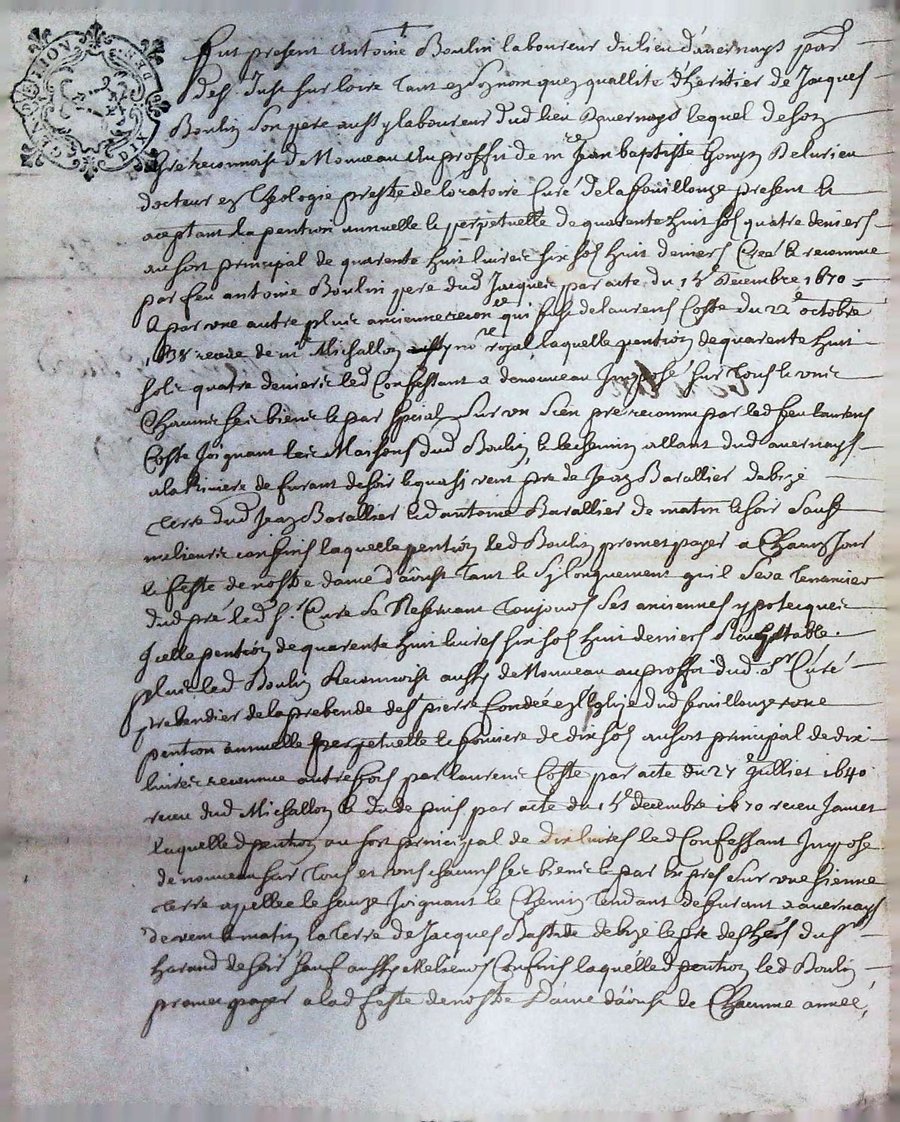 GEN DE LION DIX DEN
fut present Antoine Boulin laboureur du lieu d'avernays par
de St Just sur loire tant en son nom que quallite d'heritier de Jacques
Boulin son pere aussy laboureur dud lieu davernays lequel de son
gré reconnoist de Nouveau au proffit de mre Jean baptiste Delurieu
docteur en theologie prestre de loratoire Curé de la fouillouze present et
aceptant la pention annuelle et perpetuelle de quarente huit sols quatre deniers
au sort principal de quarente huit livres six sols huit deniers Creé et reconnue
par feu antoine Boulin pere dud Jacques par acte du 15e Decembre 1670
et par une autre plus ancienne recon qui fust de laurens Coste du 22e octobre
receue de me Michallon nore royal laquelle pention de quarente huit
sols quatre deniers led Confessant a de nouveau Imposé sur tous et uns
Chacuns ses biens et par special sur un sien pré reconnu par led feu laurens
Coste Joignant les Maisons dud Boulin, et le chemin allant dud avernays
a la Riviere de furant de soir le quasi vent pré de Jean Barallier de bize
terre dud Jean Barallier et d'antoine Barallier de matin et soir sauf
meilleurs confins laquelle pention led Boulin promet payer a Chacun Jour
et feste de nostre dame d'aôust tant et sy longuement qu'il sera tenancier
dud pré led Sr. Curé se Reservant toujours ses anciennes ypoteques
Icelle pention de quarente huit livres six sols huit deniers Rachettable.
plus led Boulin Reconnoist aussy de Nouveau au proffit dud sr Curé
prebendier de la prebende de St pierre fondée en l'Eglise dud fouillouze une
pention annuelle perpetuelle et fonciere de dix sols au sort principal de dix
livres reconnue autrefois par laurens Coste par acte du 27e Juilliet 1640
receu dud Michallon et du depuis par acte du 15e decembre 1670 receu James
laquelle pention au sort principal de dix livres led Confessant Impose
de nouveau sur tous et uns chacuns ses biens et par exprès sur une sienne
terre apellee le Joignant le Chemin tendant de furant a avernays
de vent et matin la terre de Jacques Bastide de bize le pre des hers du sr
harand de soir sauf aussy Meilleurs Confins laquelle pention led Boulin
promet payer a lad feste de nostre Dame d'aôust de Chacune année,